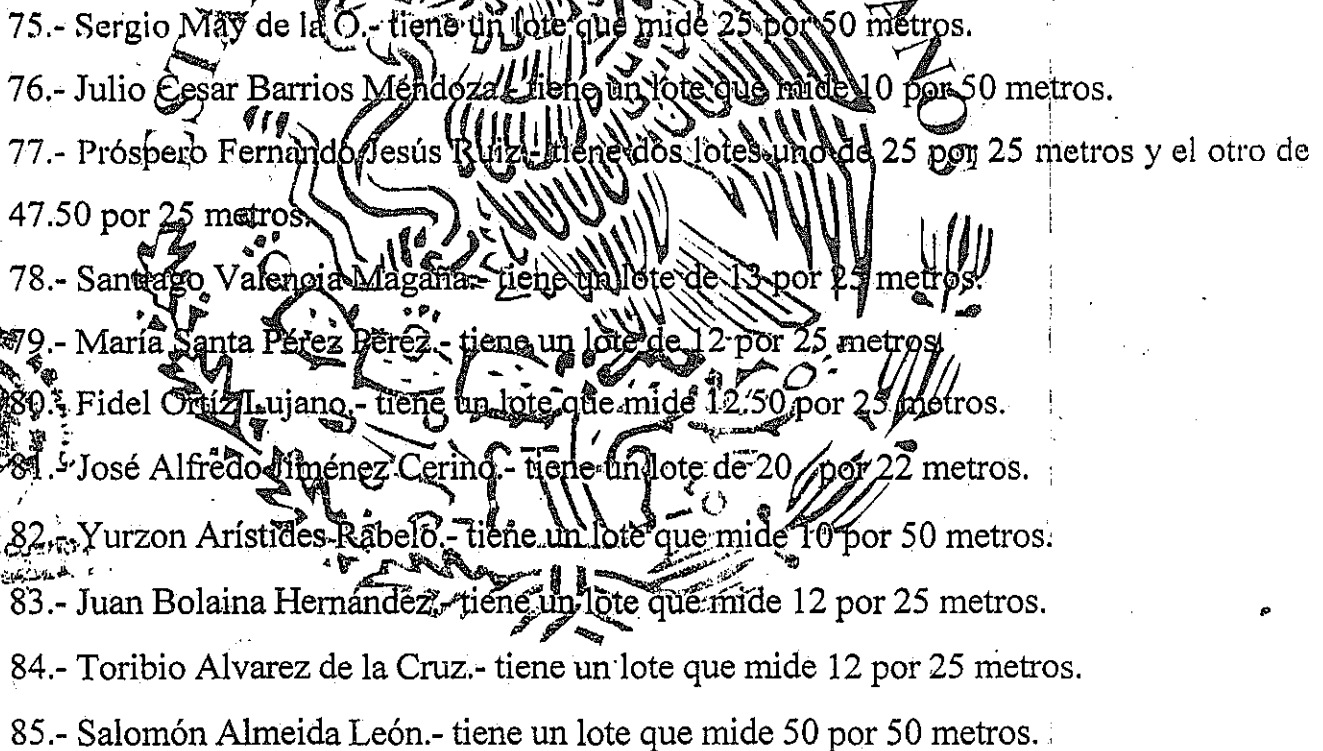 75.- Sergio May de la O.- tiene un lote que mide 25 por 50 metros.
76.- Julio Cesar Barrios Mendoza.- tiene un lote que mide 10 por 50 metros.
77.- Próspero Fernando Jesús Ruiz.- tiene dos lotes uno de 25 por 25 metros y el otro de
47.50 por 25 metros.
78.- Santiago Valencia Magaña.- tiene un lote de 13 por 25 metros.
79.- María Santa Pérez Pérez.- tiene un lote de 12 por 25 metros.
80.- Fidel Ortíz Lujano.- tiene un lote que mide 12.50 por 25 metros.
81.- José Alfredo Jiménez Cerino.- tiene un lote de 20 por 22 metros.
82.- Yurzon Arístides Rabelo.- tiene un lote que mide 10 por 50 metros.
83.- Juan Bolaina Hernández.- tiene un lote que mide 12 por 25 metros.
84.- Toribio Alvarez de la Cruz.- tiene un lote que mide 12 por 25 metros.
85.- Salomón Almeida León.- tiene un lote que mide 50 por 50 metros.